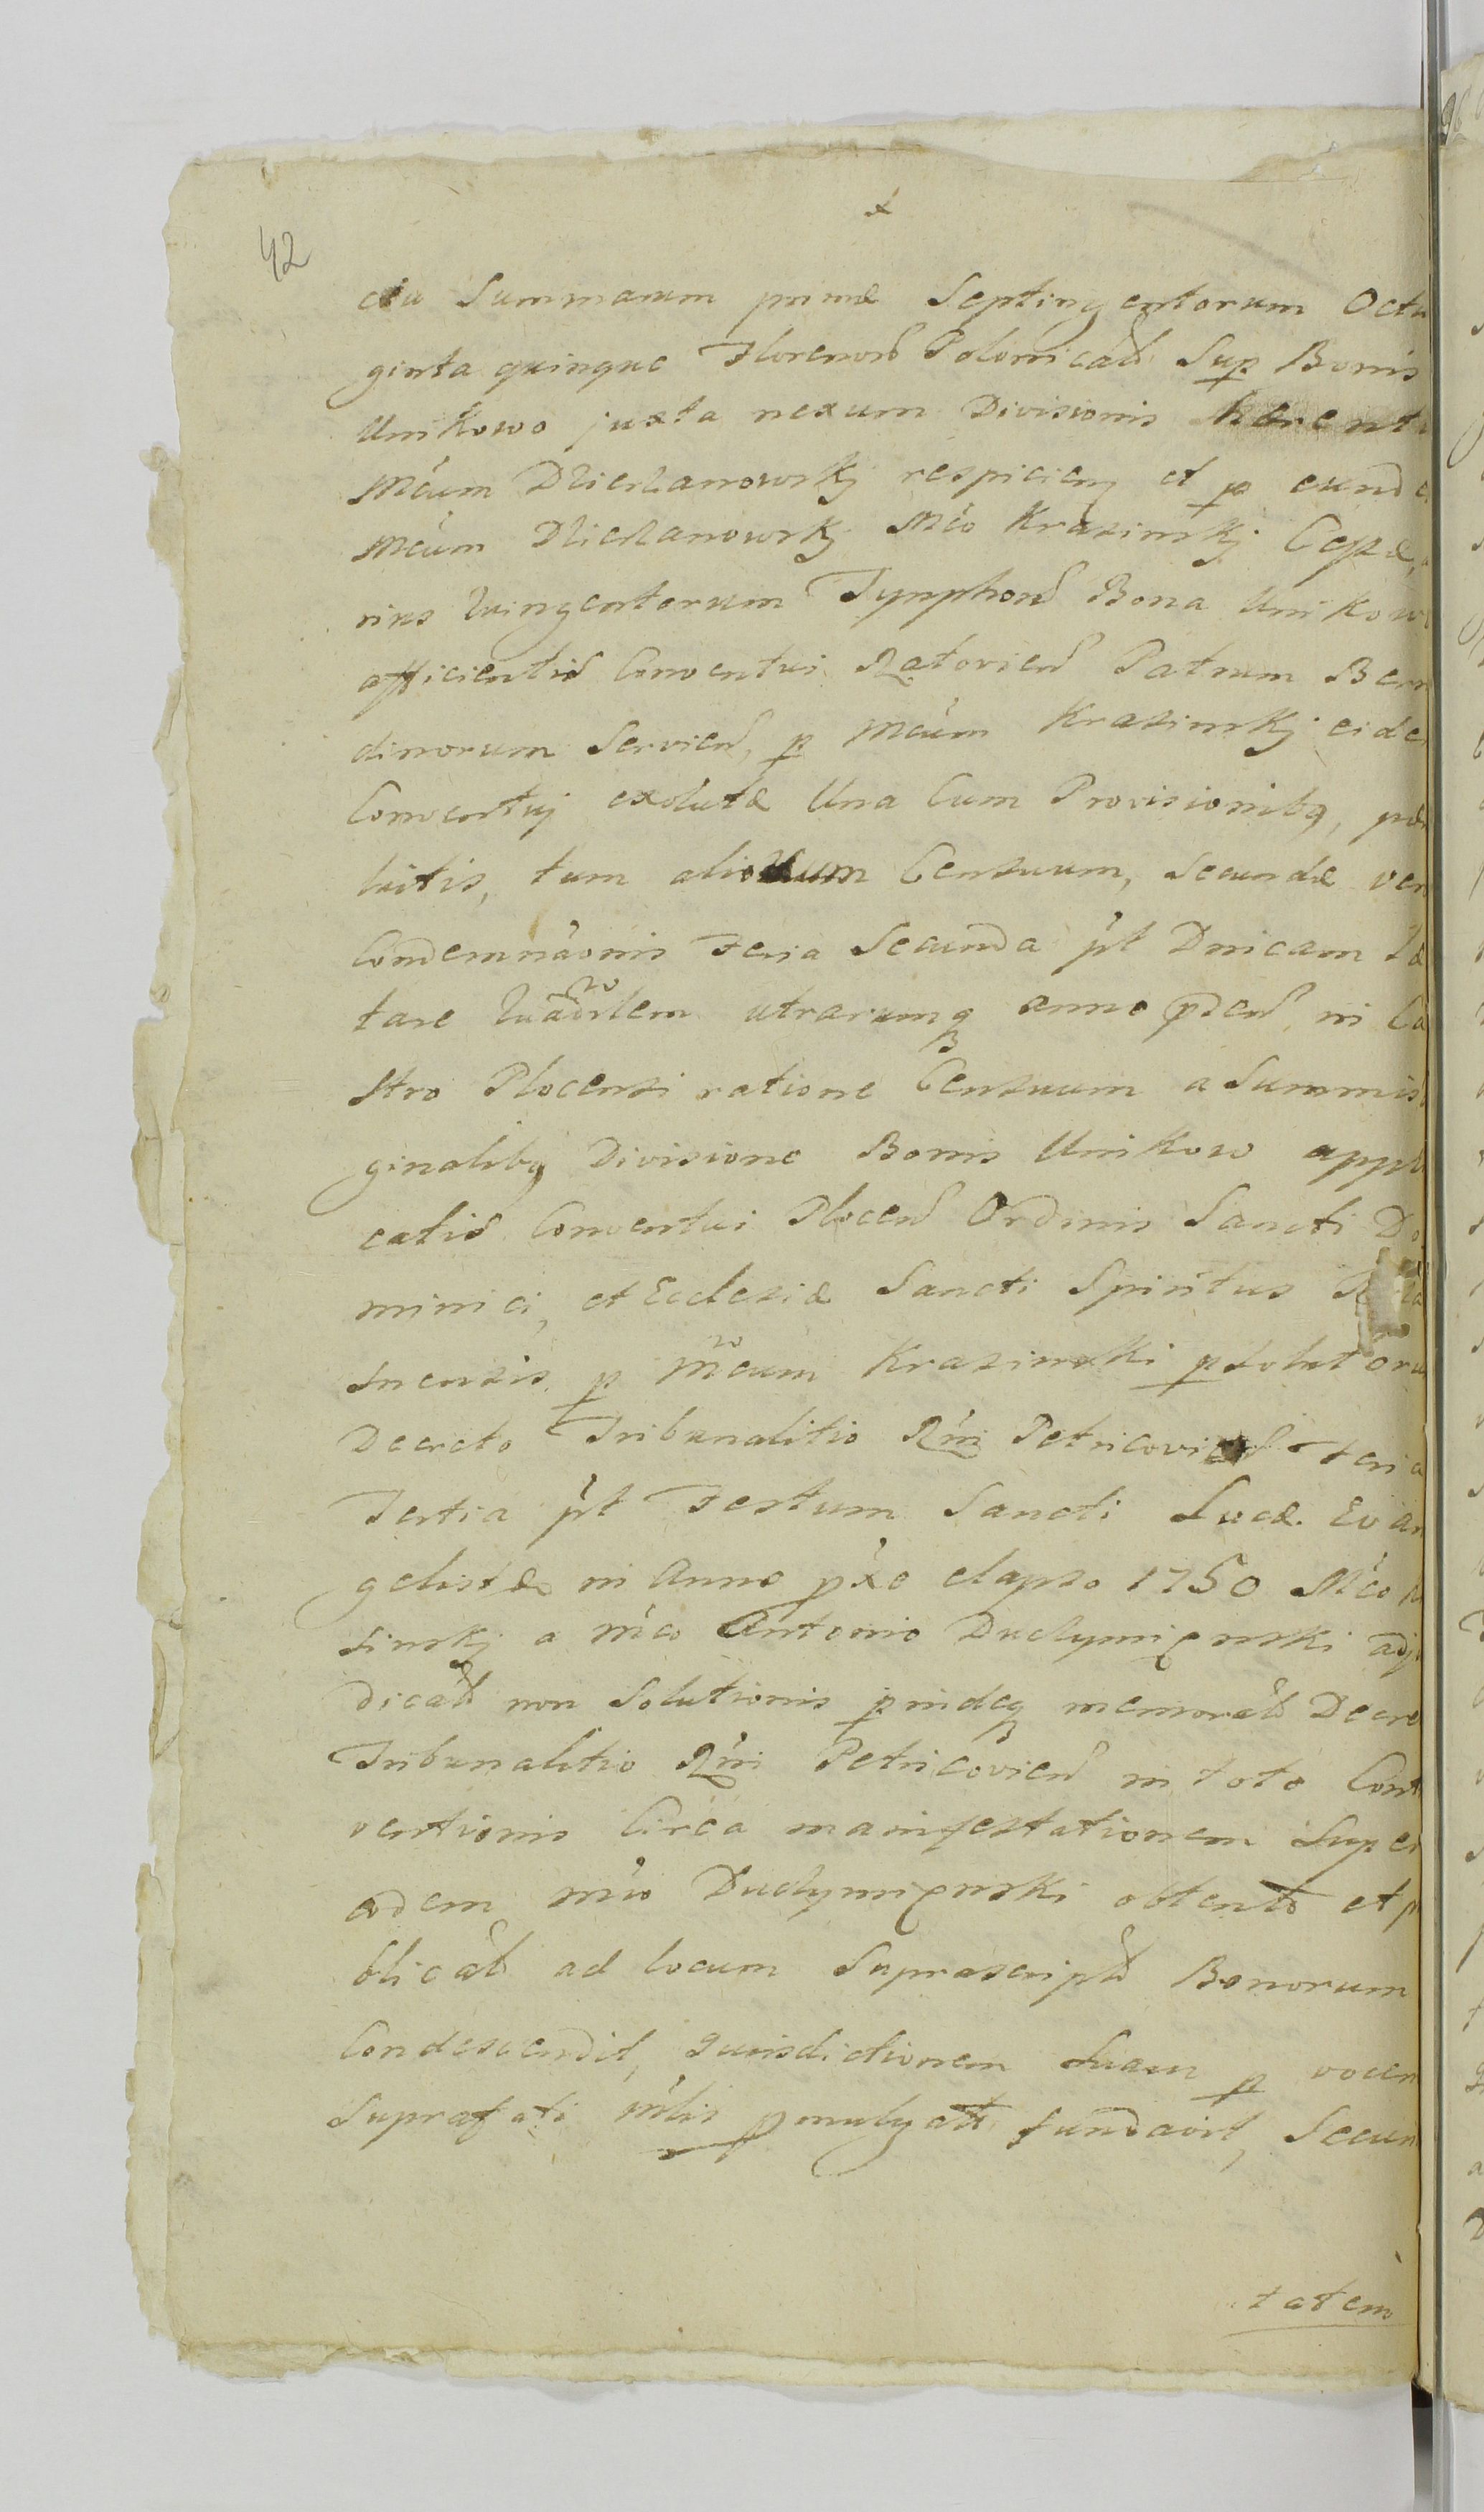 42
x
cia Summarum primæ Septingentorum Octu
ginta quinque Florenorũ Polonicalũ Sup Bonis
Unikowo juxta nexum Divisionis hærent
Mcum Dzierzanowskj respicien et p eunde
Mcum Dzierzanowskj Mco Krasinskj Cessæ,
rius Quingentorum Tynphonũ Bona Unikow
afficientiũ Conventui Ratovień Patrum Bern
dinorum Servień, p Mcum Krasinskj eide
Conventuj exolutæ Una Cum Provisionibq, per
lutis, tum aliorum Censuum, Secundæ ver
Condemnãonis Feria Secunda pt Dnicam Læ
tare Quadrlem utrarumq anno pdeń in Ca
stro Plocensi ratione Censuum a Summis
ginalibq Divisione Bonis Unikow appli
catis Conventui Ploceń Ordinis Sancti Do
minici, et Ecclesiæ Sancti Spiritus
snensis p Mcum Krasinski psolutoru
Decreto Tribunalitio Rni Petricovień Feria
Tertia pt Festum Sancti Lucæ Evan
gelistæ in Anno pxe elapso 1750 Mco
sinskj a mco Antonio Duczymięnski adj
dicatũ non Solutionis pindeq memoratũ Decre
Tribunalitio Rni Petricovień in toto Cont
ventionis Circa manifestationem Super
eodem mco Duczymięnski obtentũ et p
blicatũ ad locum Suprascriptũ Bonorum
Condescendit, Jurisdictionem Suam p vocem
Suprafati mlis pmulgatũ fundavit, Secun
tatem